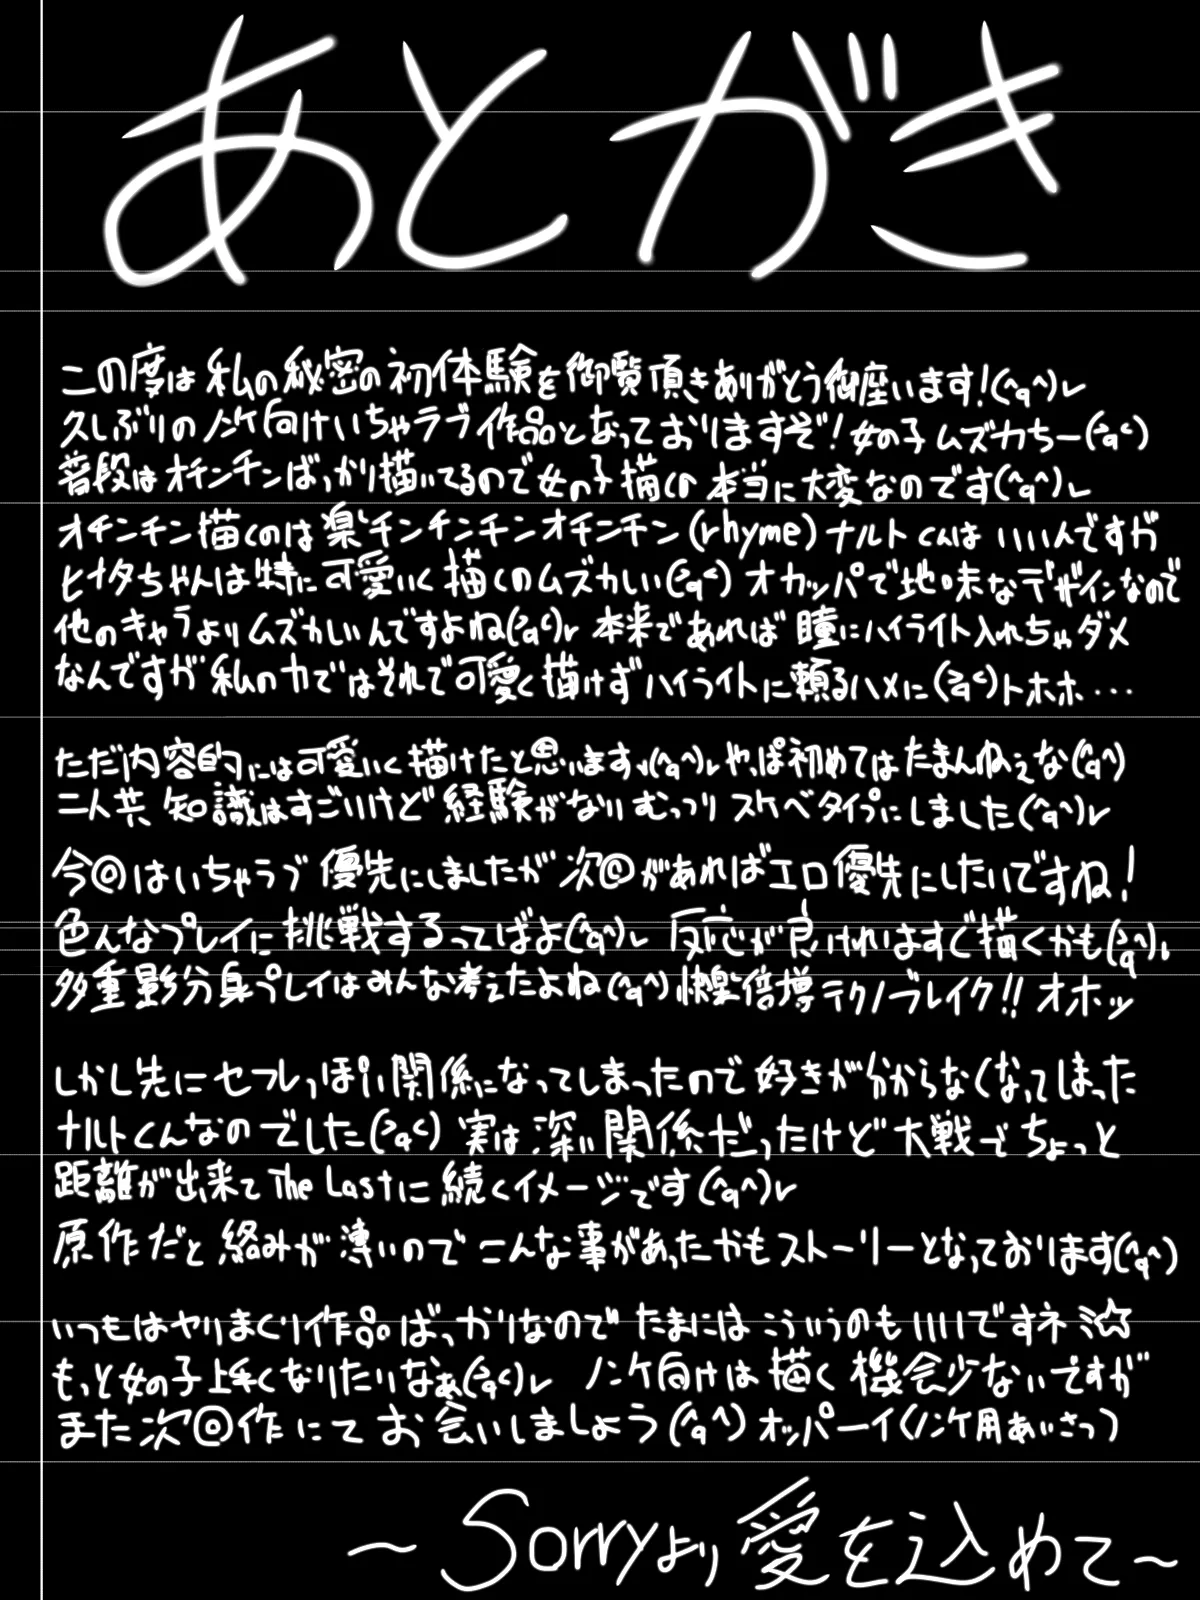 あとがき
この度は私の秘密の初体験を御覧頂きありがとう御座います!(^q^)レ
久しぶりのノンケ向けいちゃラブ作品となっておりますぞ!女の子ムズカちー(>q<)
普段はオチンチンばっかり描いてるので女の子描くの本当に大変なのです(^q^)レ
オチンチン描くのは楽チンチンチンオチンチン(rhyme)ナルトくんはいいんですが
ヒナタちゃんは特に可愛いく描くのムズカしい(>q<)オカッパで地味なデザインなので
他のキャラよりムズかしいんですよね(>q<)レ本来であれば瞳にハイライト入れちゃダメ
なんですが私の力ではそれで可愛く描けずハイライトに頼るハメに(>q<)トホホ・・・
ただ内容的には可愛いく描けたと思います、(^q^)レやっぱ初めてはたまんねぇな(^q^)
二人共知識はすごいけど経験がないむっつりスケベタイプにしました(^q^)レ
今回はいちゃラブ優先にしましたが次回があればエロ優先にしたいですね!
色んなプレイに挑戦するってばよ(^q^)レ反応が良ければすぐ描くかも(>q<)レ
多重影分身プレイはみんな考えたよね(^q^)快楽倍増テクノブレイク!!オホッ
しかし先にセフレっぽい関係になってしまったので好きが分からなくなってしまった
ナルトくんなのでした(>q<)実は深い関係だったけど大戦でちょっと
距離が出来てThe Lastに続くイメージです(^q^)レ
原作だと絡みが薄いのでこんな事があったかもストーリーとなっております(^q^)
いつもはヤりまくり作品ばっかりなのでたまにはこういうのもいいですネ
もっと女の子上手くなりたいなぁ(>q<)レ ノンケ向けは描く機会少ないですが
また次回作にてお会いしましょう(^q^)オッパーイ(ノンケ用あいさつ)
～Sorryより愛を込めて～